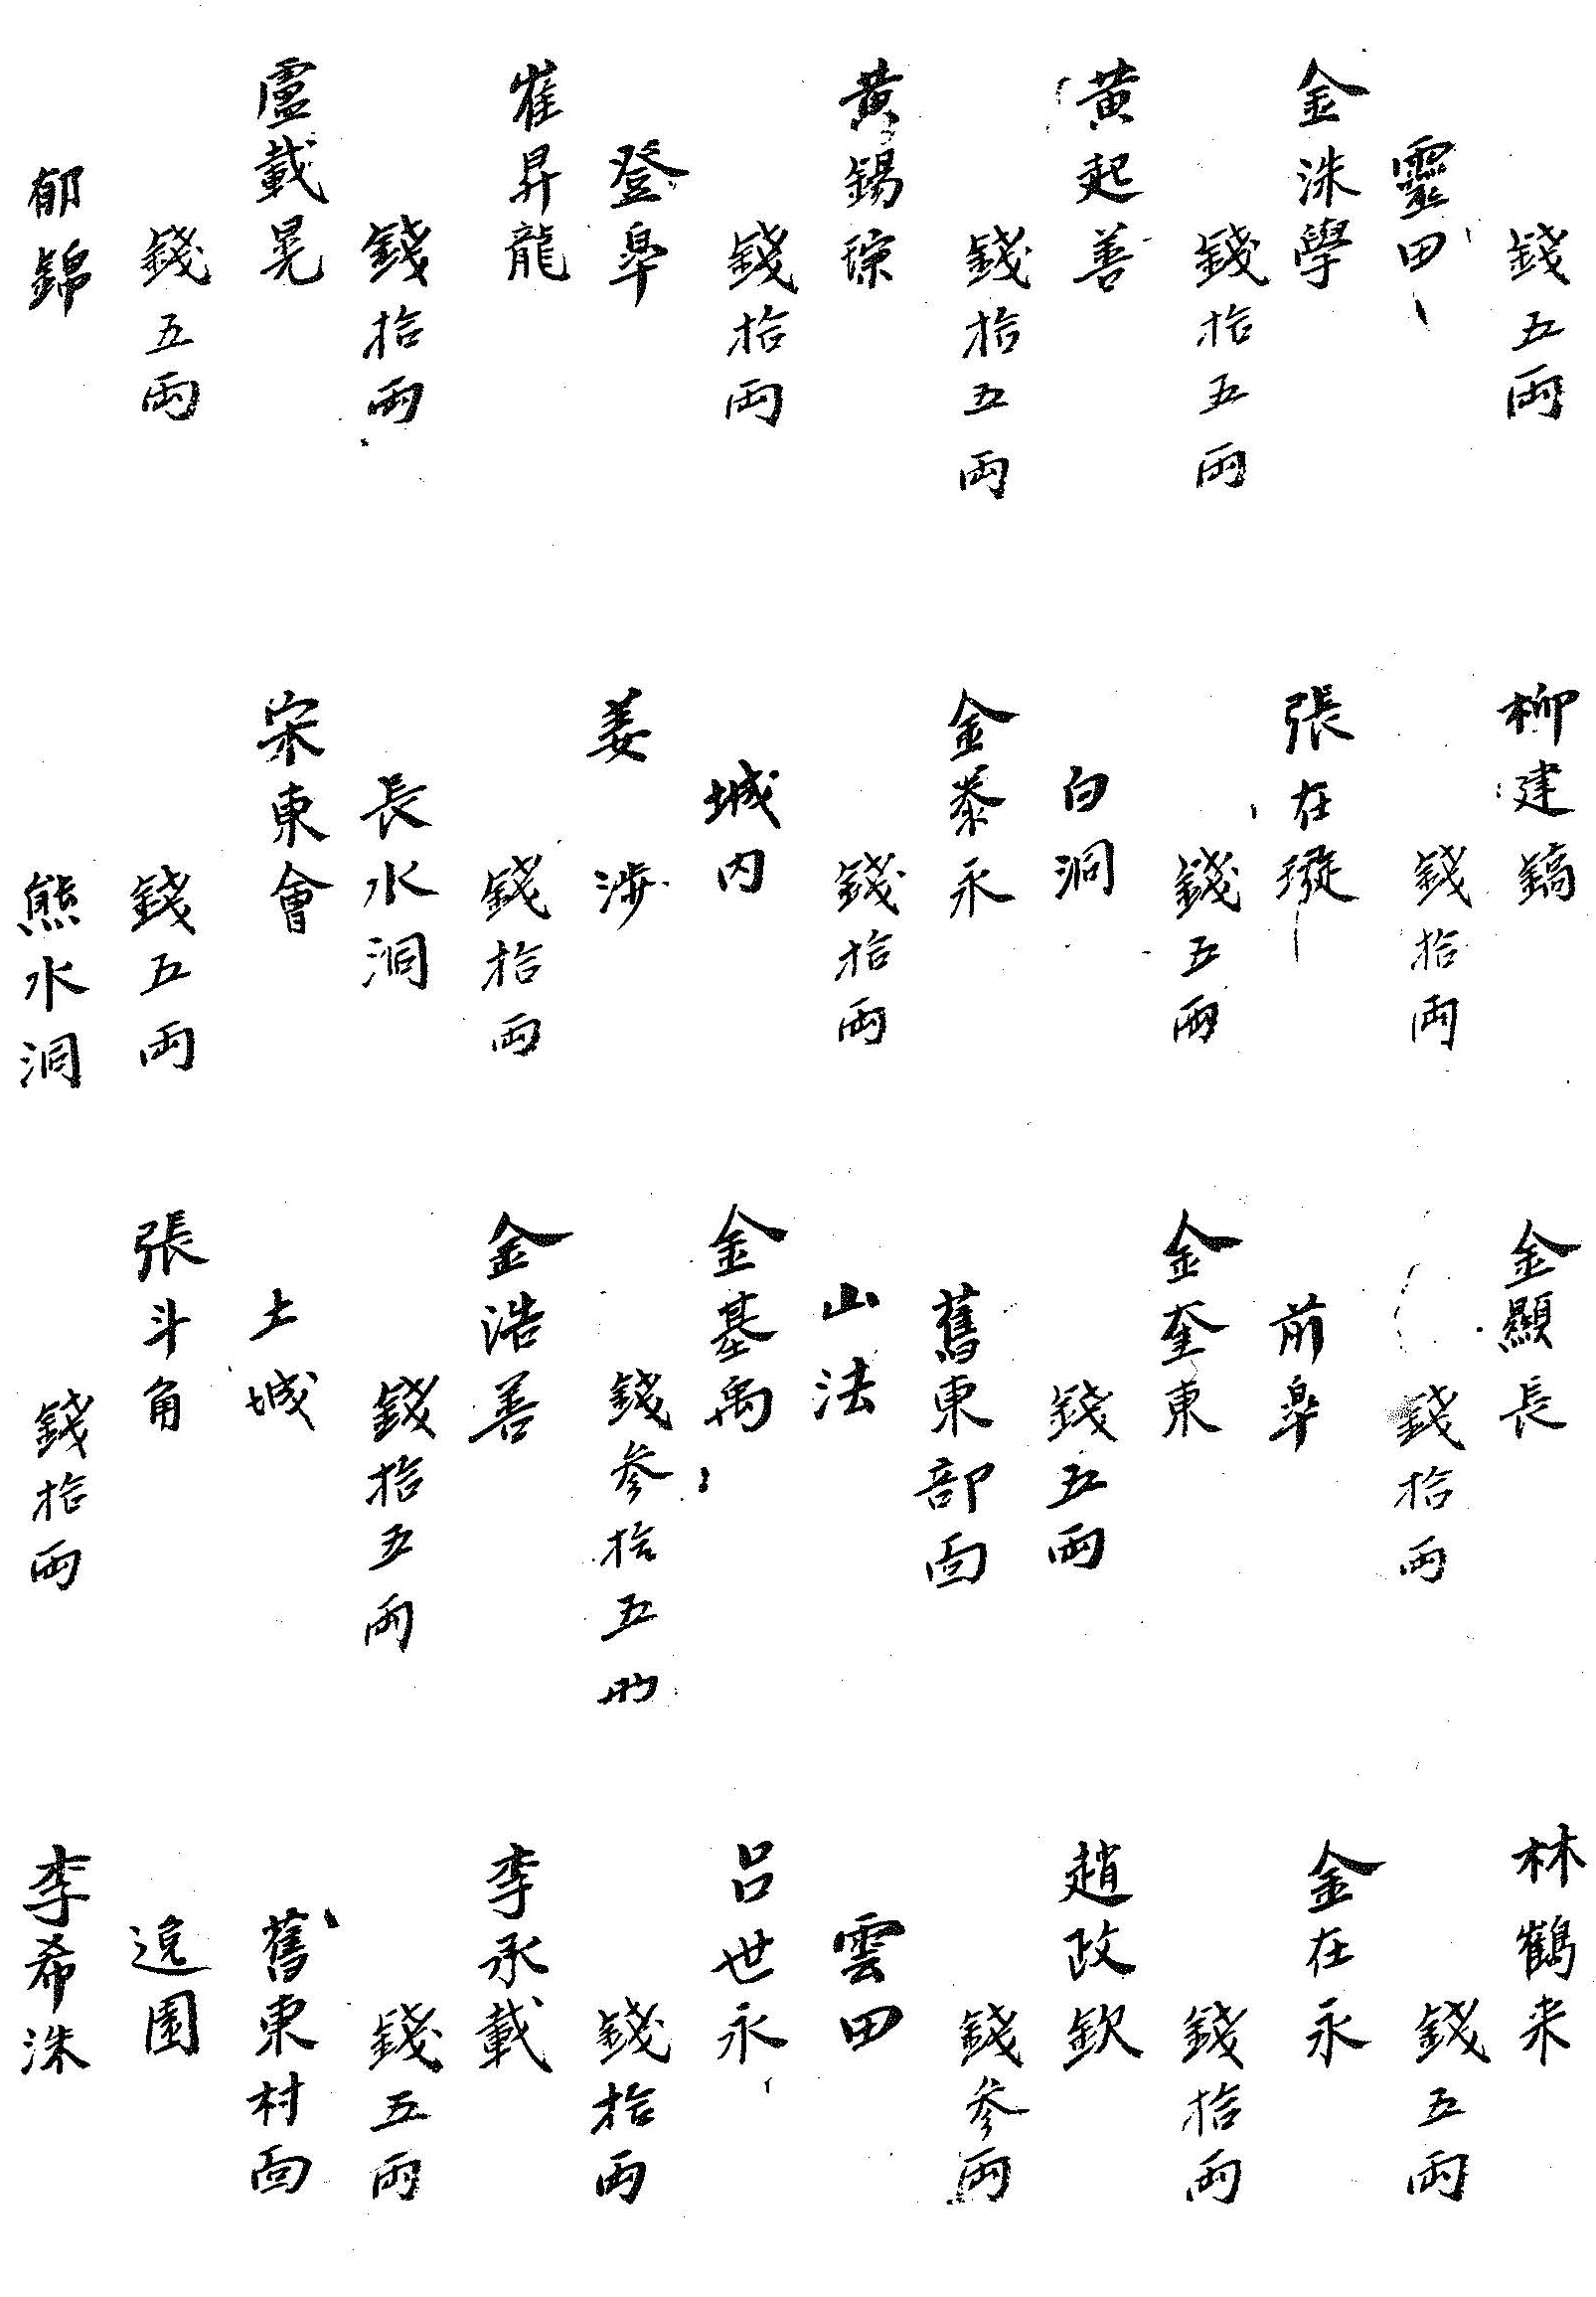 錢五兩
靈田
金洙學
錢拾五兩
黃起善
錢拾五兩
黃錫琮
錢拾兩
登皐
崔昇龍
錢拾兩
盧載晃
錢五兩
郁錦
柳建鎬
錢拾兩
張在璇
錢五兩
白洞
金泰永
錢拾兩
城内
姜渉
錢拾兩
長水洞
宋東會
錢五兩
熊水洞
金顯長
錢拾兩
前皐
金奎東
錢五兩
舊東部面
山法
金基禹
錢参拾五兩
金浩善
錢拾五兩
土城
張斗角
錢拾兩
林鶴来
錢五兩
金在永
錢拾兩
趙政欽
錢参兩
雲田
呂世永
錢拾兩
李承載
錢五兩
舊東村面
逸園
李希洙